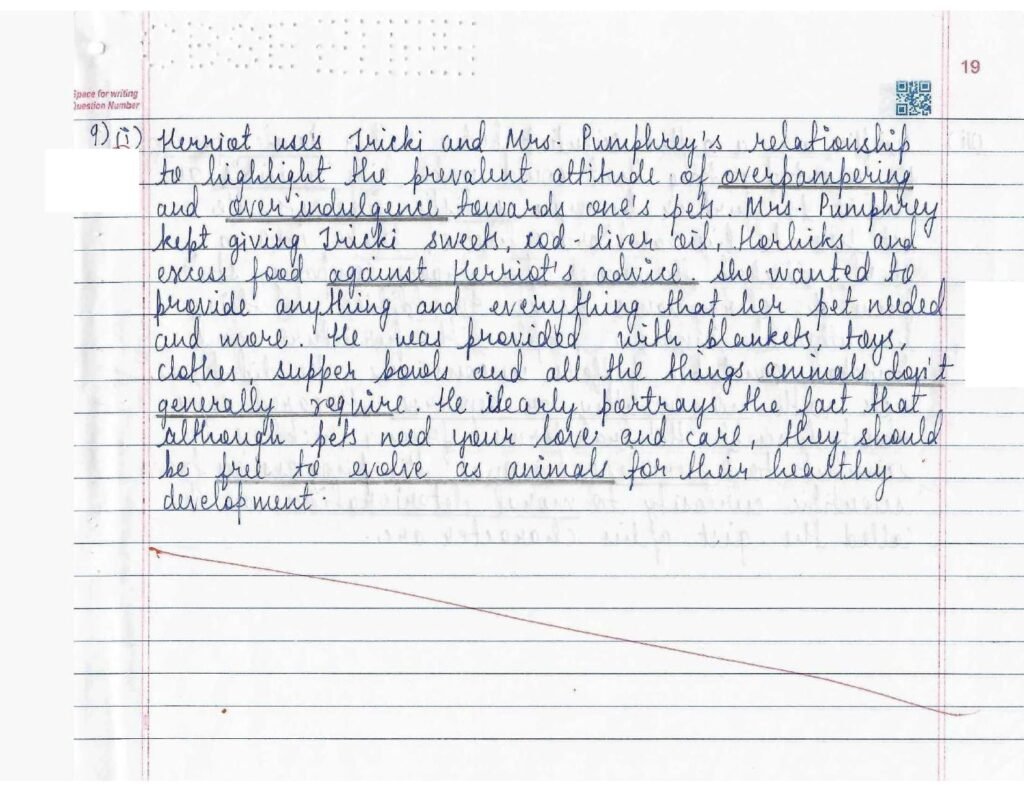 19
Space for writing
Question Number
9) ii) Herriot uses Tricki and Mrs. Pumphrey's relationship
to highlight the prevalent attitude of overpampering
and over indulgence towards one's pets. Mrs. Pumphrey
kept giving Tricki sweets, cod-liver oil, Horlicks and
excess food against Herriot's advice. She wanted to
provide anything and everything that her pet needed
and more. He was provided with blankets, toys,
clothes, supper bowls and all the things animals don't
generally require. He clearly portrays the fact that
although pets need your love and care, they should
be free to evolve as animals for their healthy
development.